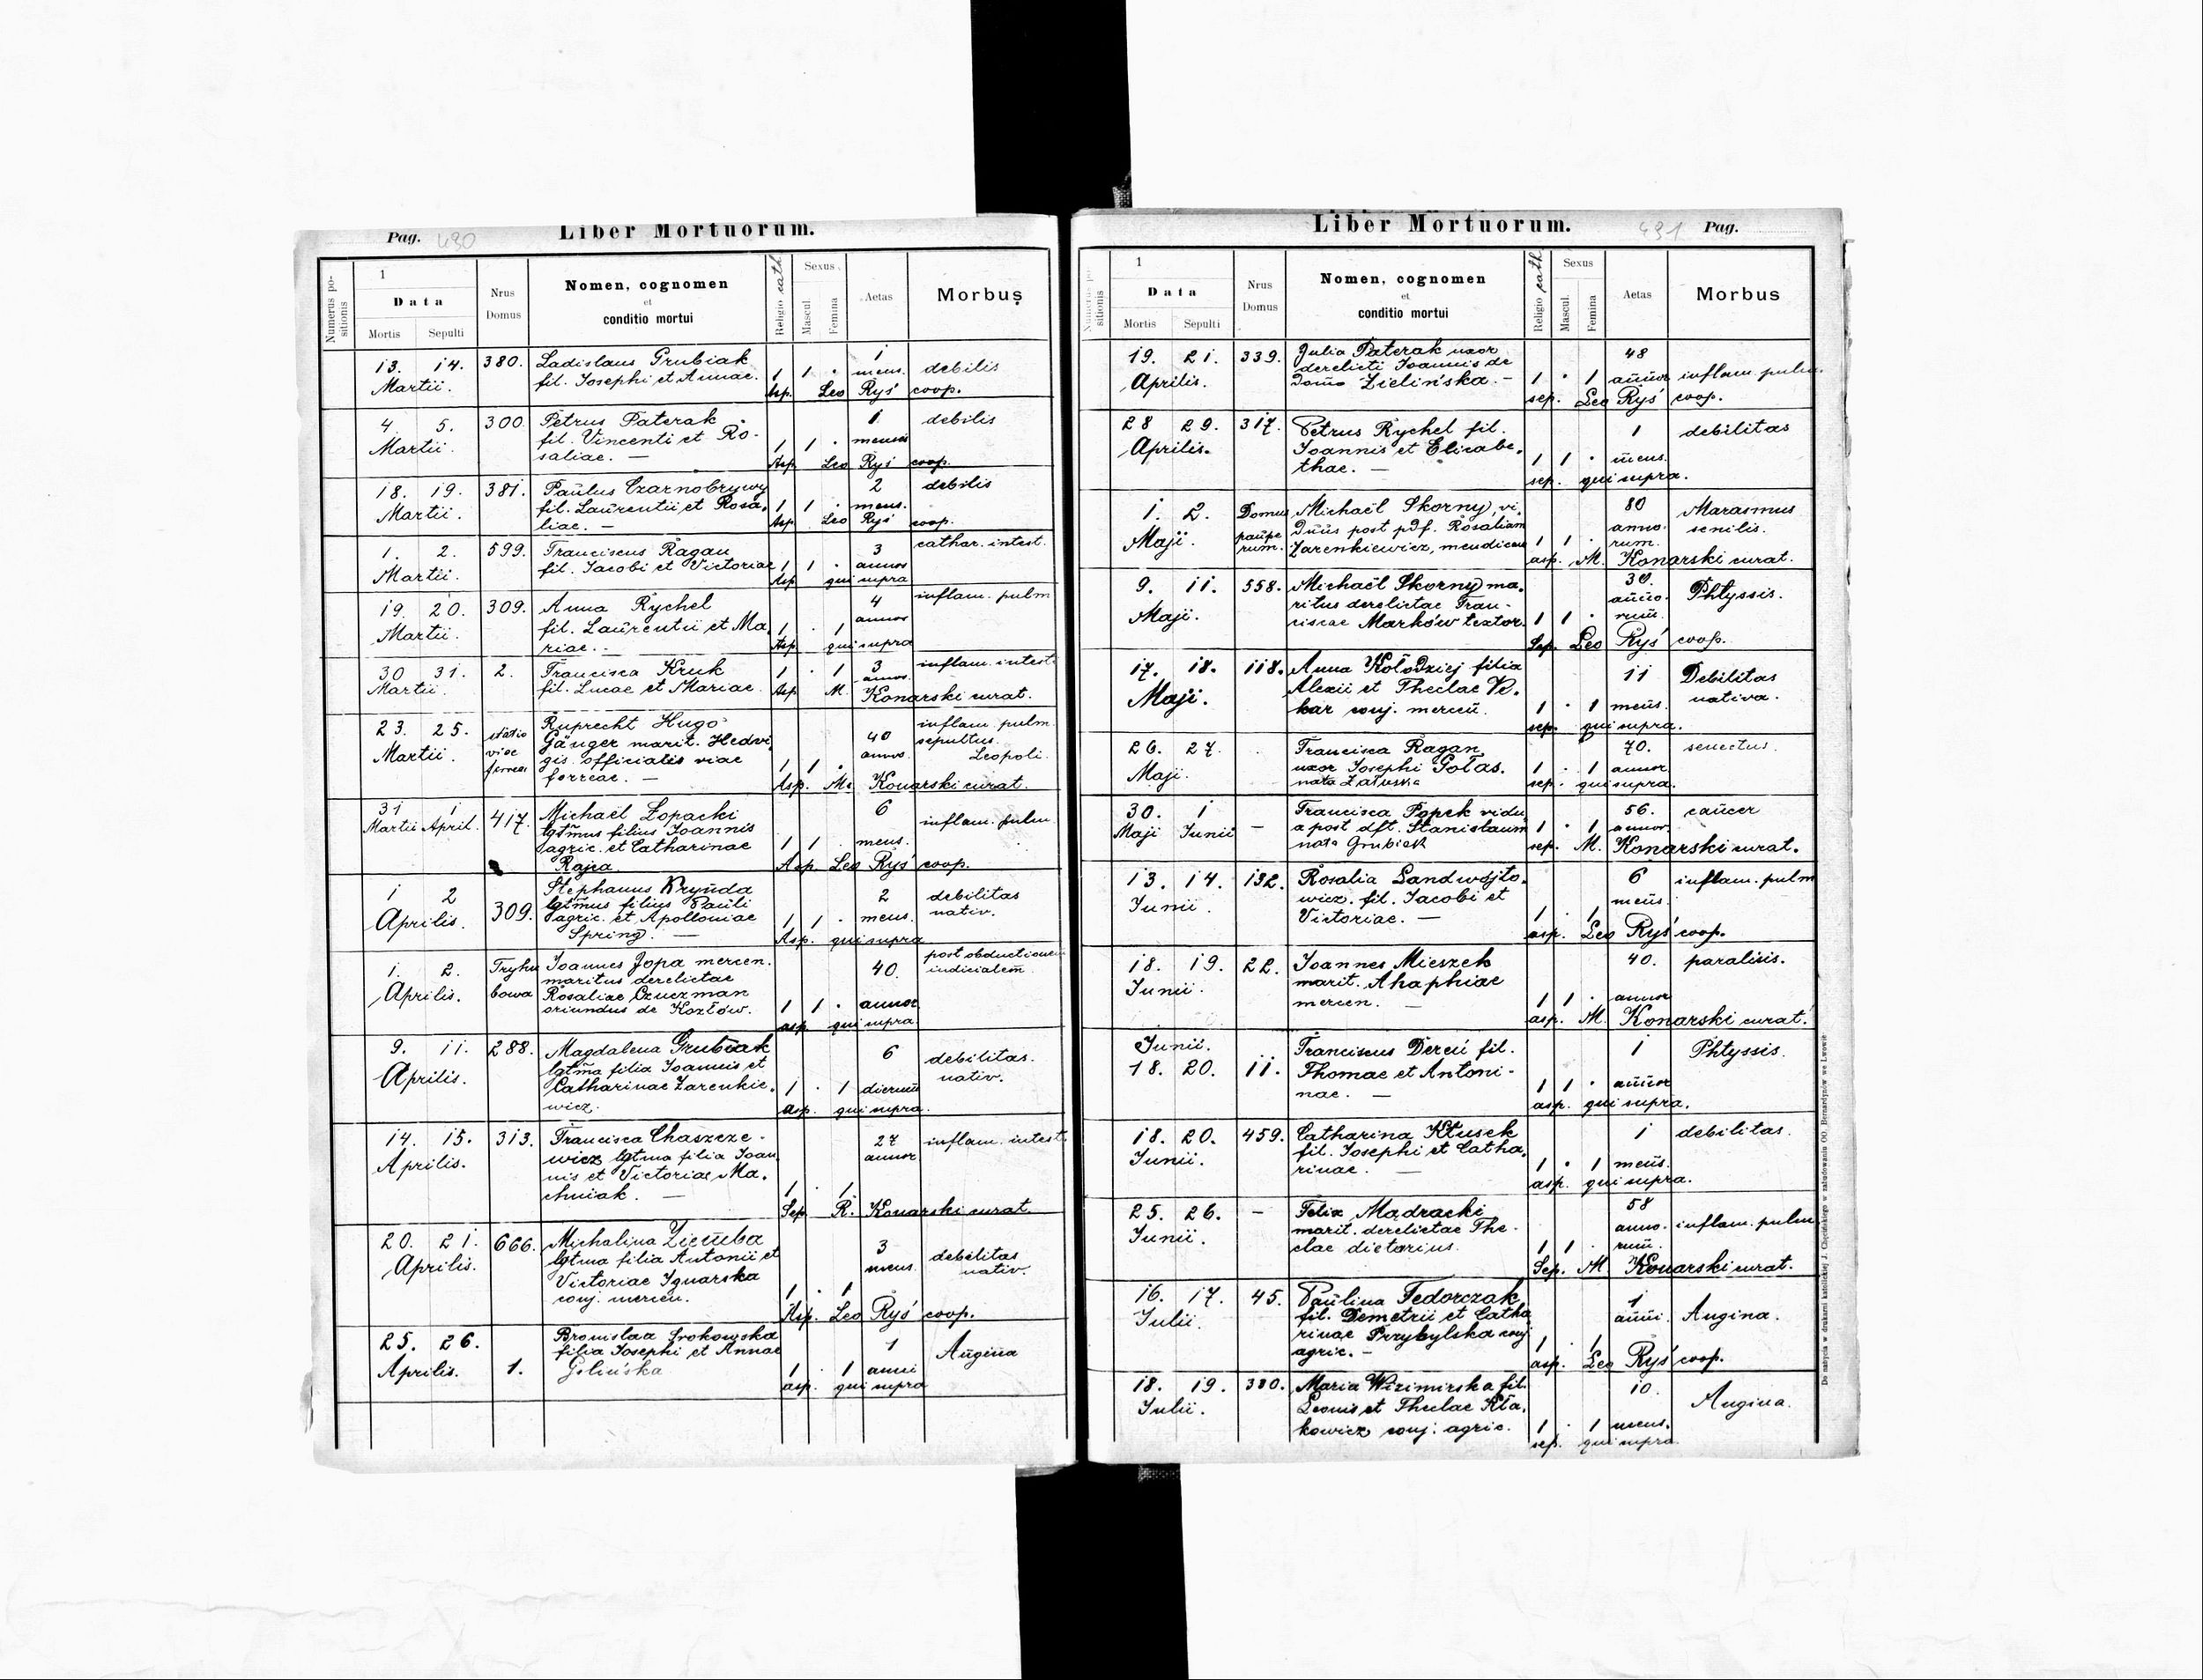 Pag. 430 Liber Mortuorum.
Numerus positionis
1
Data
Mortis Sepulti
Nrus Domus
Nomen, cognomen
et
conditio mortui
Religio cath
Sexus
Mascul. Femina
Aetas
Morbus
13. 14. 380. Ladislaus Grubiak 1 debilis
Martii. fil. Josephi et Annae. 1 1 . mens.
Asp. Leo Ryś coop.
4 5. 300. Petrus Paterak 1 debilis
Martii. fil. Vincenti et Ro-
saliae. — 1 1 . mensis
Asp. Leo Ryś coop.
18. 19. 381. Paulus Czarnobrywy 2 debilis
Martii. fil. Laurentii et Rosa- 1 1 . mens.
liae. — Asp. Leo Ryś coop.
1. 2. 599. Franciscus Ragan 3 cathar. intest.
Martii. fil. Jacobi et Victoriae 1 1 . annor
Asp qui supra
19. 20. 309. Anna Rychel 4 inflam. pulm
Martii. fil. Laurentii et Ma- 1 . 1 annor
riae. . Asp qui supra
30 31. 2. Francisca Kruk 1 . 1 3 inflam. intest.
Martii. fil. Lucae et Mariae. annor.
Asp M. Konarski curat.
23. 25. statio Ruprecht Hugo 40 inflam. pulm.
Martii. viae Gänger marit. Hedvi- annor sepultus
ferreae gis. officialis viae Leopoli.
ferreae. — 1 1 .
Asp. M. Konarski curat.
31 1 417. Michaël Łopacki 6 inflam. pulm
Martii April. lgtm̃us filius Joannis
agric. et Catharinae 1 1 . mens.
Rajca Asp. Leo Ryś coop.
1 2 309. Stephanus Krynda 2 debilitas
Aprilis. lgtm̃us filius Pauli mens. nativ.
agric. et Apolloniae 1 1 .
Spring. — Asp. qui supra
1. 2. Tryhu Joannes Jopa mercen. 40. post obductionem
Aprilis. bowa maritus derelictae iudicialem̃.
Rosaliae Czuczman
oriundus de Kozłów. 1 1 . annor
asp. qui supra
9. 11. 288. Magdalena Grubiak 6 debilitas.
Aprilis. lgtm̃a filia Joannis et nativ.
Catharinae Zarenkie- 1 . 1 dierum
wicz. asp. qui supra.
14. 15. 313. Francisca Chaszcze- 27 inflam. intest.
Aprilis. wicz lgtma filia Joan- annor
nis et Victoriae Ma-
chniak. — 1 . 1.
Sep. R. Konarski curat
20. 21. 666. Michalina Ziemba 3 debilitas
Aprilis. lgtma filia Antonii et mens. nativ.
Victoriae Ignarska
conj. mercen. 1 . 1
Asp. Leo Ryś coop.
25. 26. 1. Bronislaa Srokowska 1 Angina
Aprilis. filia Josephi et Annae
Golińska 1 . 1 anni
asp. qui supra
Liber Mortuorum. 431 Pag.
Numerus positionis
1
Data
Mortis Sepulti
Nrus Domus
Nomen, cognomen
et
conditio mortui
Religio cath
Sexus
Mascul. Femina
Aetas
Morbus
19. 21. 339. Julia Paterak uxor 48
Aprilis. derelicti Joannis de
Domo Zielińska. — 1 . 1 annor inflam. pulm.
sep. Leo Ryś coop.
28 29. 317. Petrus Rychel fil. 1 debilitas
Aprilis. Joannis et Elisabe-
thae. — 1 1 . mens.
sep. qui supra.
1. 2. Domus Michaël Skorny, vi- 80 Marasmus
Maji. paupe duus post pdf. Rosaliam anno- senilis.
rum. Zarenkiewicz, mendicus 1 1 . rum.
asp. M. Konarski curat.
9. 11. 558. Michaël Skorny ma- 30. Phtyssis.
Maji. ritus derelictae Fran- anno-
ciscae Marków textor. 1 1 . rum
Sep. Leo Ryś coop.
17. 18. 118. Anna Kołodziej filia 11 Debilitas
Maji. Alexii et Theclae Vi- nativa.
kar conj. mercen. 1 . 1 mens.
sep. qui supra.
26. 27. . Francisca Ragan 70. senectus.
Maji. uxor Josephi Gołas. 1 . 1 annor
nata Załuska sep. qui supra.
30. 1 — Francisca Popek vidu 56. cancer
Maji Junii a post dft. Stanislaum 1 . 1 annor.
nata Grubiak sep. M. Konarski curat.
13. 14. 132. Rosalia Landwójto- 6 inflam. pulm
Junii. wicz. fil. Jacobi et mens.
Victoriae. — 1 . 1
asp. Leo Ryś coop.
18. 19. 22. Joannes Mieszek 40. paralisis.
Junii. marit. Ahaphiae
mercen. — 1 1 . annor
asp. M. Konarski curat.
Junii. Franciscus Dereń fil. 1 Phtyssis.
18. 20. 11. Thomae et Antoni-
nae. — 1 1 . annor
asp. qui supra.
18. 20. 459. Catharina Kłusek 1 debilitas.
Junii. fil. Josephi et Catha-
rinae. — 1 . 1 mens.
asp. qui supra.
25. 26. — Felix Mądracki 58
Junii. marit. derelictae The- anno- inflam. pulm
clae dietarius. 1 1 . rum.
Sep. M Konarski curat.
16. 17. 45. Paulina Fedorczak 1
Julii. fil. Demetrii et Catha anni. Angina.
rinae Przybylska conj
agric. — 1 . 1
asp. Leo Ryś coop.
18. 19. 380. Maria Wizimirska fil. 10. Angina.
Julii. Leonis et Theclae Kła-
kowicz conj. agric. 1 . 1 mens.
sep. qui supra
De nabycia w drukarni katolickiej J. Chęcińskiego w zabudowaniu OO. Bernardynów we Lwowie